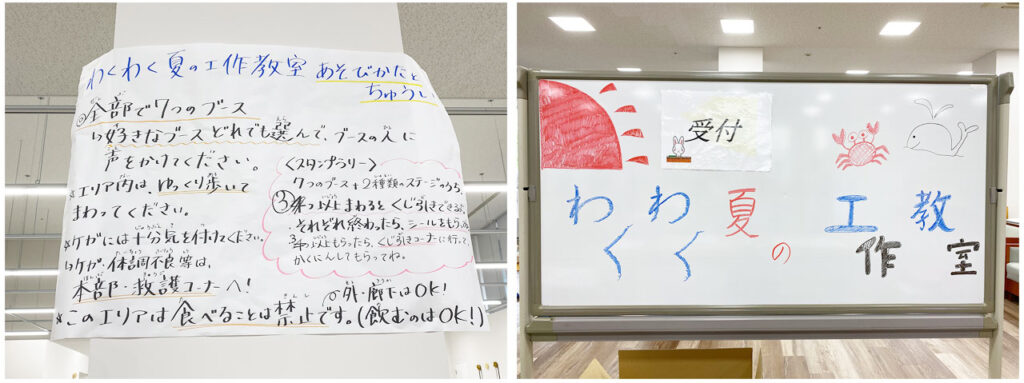 わくわく夏の工作教室 あそびかたと
ちゅうい
◎全部で7つのブース
↳好きなブースどれでも選んで、ブースの人に
声をかけてください。
*エリア内は、ゆっくり歩いて
まわってください。
*ケガには十分気を付けてください。
↳ケガ・体調不良等は、
本部・救護コーナーへ!
*このエリアは食べることは禁止です。(飲むのはOK!)
外・廊下はOK!
<スタンプラリー>
7つのブース+2種類のステージのうち
③つ以上まわるとくじ引きできるよ
・それぞれ終わったら、シールをもらって
3つ以上もらったら、くじ引きコーナーに行って、
かくにんしてもらってね。
受付
わくわく夏の工作教室